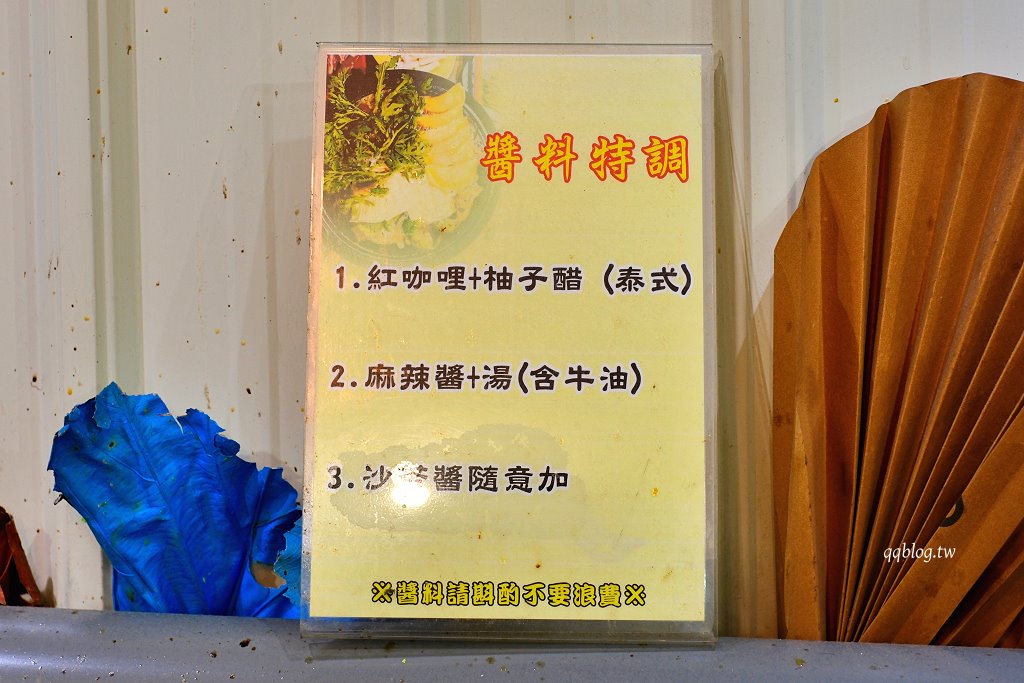 醬料特調
1.紅咖哩+柚子醋 (泰式)
2.麻辣醬+湯(含牛油)
3.沙茶醬隨意加
※醬料請斟酌不要浪費※
qqblog.tw